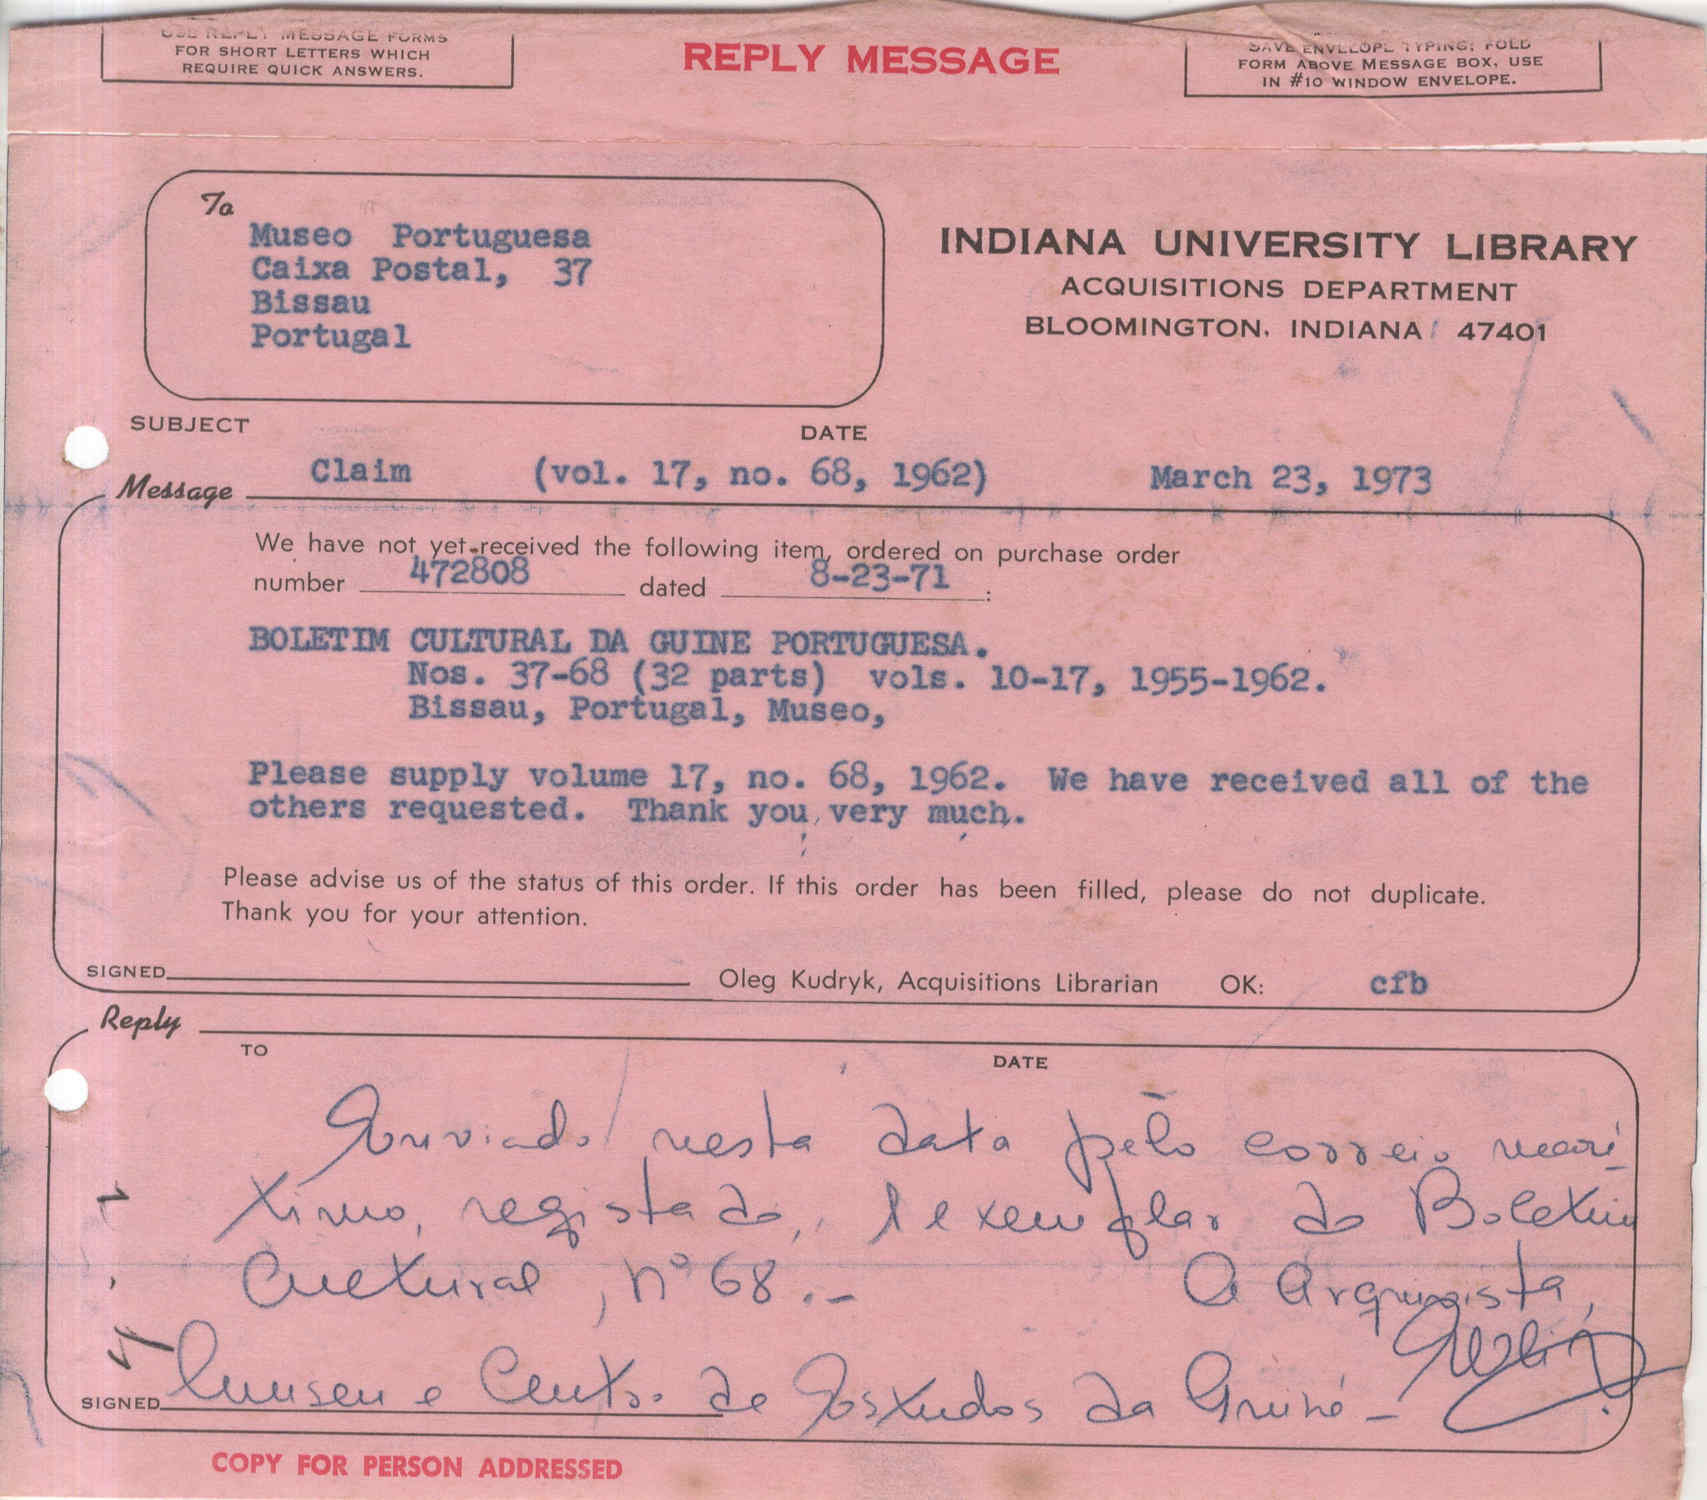 USE REPLY MESSAGE FORMS
FOR SHORT LETTERS WHICH
REQUIRE QUICK ANSWERS.
REPLY MESSAGE
SAVE ENVELOPE TYPING; FOLD
FORM ABOVE MESSAGE BOX, USE
IN #10 WINDOW ENVELOPE.
To
Museo Portuguesa
Caixa Postal, 37
Bissau
Portugal
INDIANA UNIVERSITY LIBRARY
ACQUISITIONS DEPARTMENT
BLOOMINGTON, INDIANA 47401
SUBJECT
DATE
Claim (vol. 17, no. 68, 1962) March 23, 1973
Message
We have not yet received the following item, ordered on purchase order
number 472808 dated 8-23-71 :
BOLETIM CULTURAL DA GUINE PORTUGUESA.
Nos. 37-68 (32 parts) vols. 10-17, 1955-1962.
Bissau, Portugal, Museo,
Please supply volume 17, no. 68, 1962. We have received all of the
others requested. Thank you very much.
Please advise us of the status of this order. If this order has been filled, please do not duplicate.
Thank you for your attention.
SIGNED Oleg Kudryk, Acquisitions Librarian OK: cfb
Reply
TO DATE
Enviado nesta data pelo correio marí-
timo, registado, 1 exemplar do Boletim
Cultural, nº 68.-
O Arquivista,
SIGNED Museu e Centro de Estudos da Guiné -
COPY FOR PERSON ADDRESSED